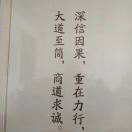 深信因果，重在力行，
大道至简，商道求诚。